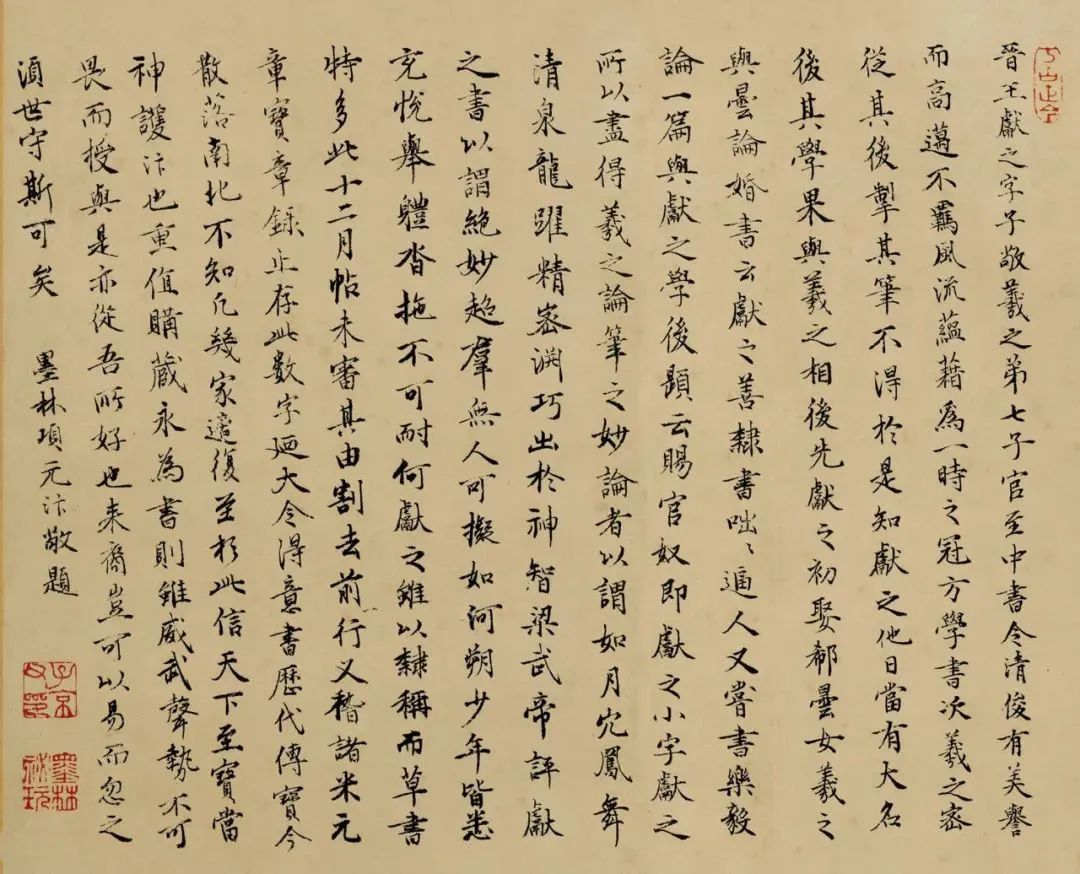 晉王獻之字子敬羲之弟七子官至中書令清俊有美譽
而高邁不羈風流蘊藉為一時之冠方學書次羲之密
從其後掣其筆不得於是知獻之他日當有大名
後其學果與羲之相後先獻之初娶郗曇女羲之
與曇論婚書云獻之善隸書咄〻逼人又嘗書樂毅
論一篇與獻之學後題云賜官奴即獻之小字獻之
所以盡得羲之論筆之妙論者以謂如月穴鳳舞
清泉龍躍精密淵巧出於神智梁武帝評獻
之書以謂絶妙超羣無人可擬如河朔少年皆悉
充悅舉體沓拖不可耐何獻之雖以隸稱而草書
特多此十二月帖未審其由割去前行又稽諸米元
章寶章錄止存此數字廼大令得意書歷代傳寶今
散落南北不知凡幾家遘復至於此信天下至寶當
神護汴也重值購藏永為書則雖威武聲勢不可
畏而授與是亦從吾所好也来裔豈可以易而忽之
湏世守斯可矣 墨林項元汴敬題
子京父印
墨林祕玩